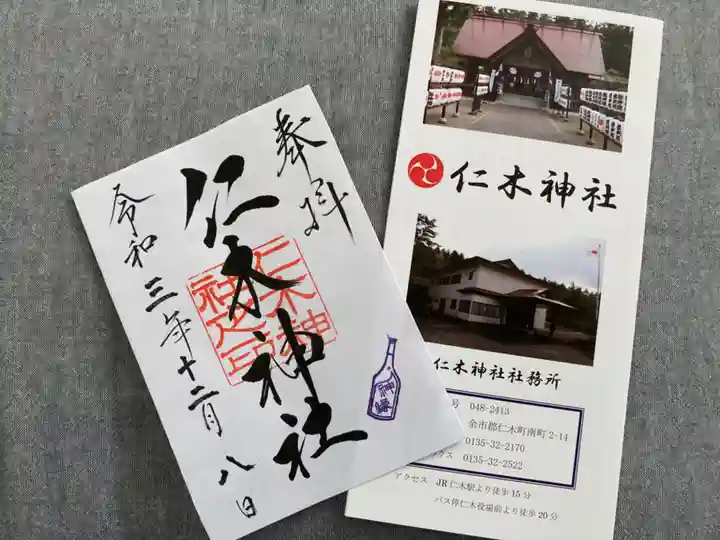 奉拝
仁木神社
仁木神
社之印
令和三年十二月八日
神酒
仁木神社
仁木神社社務所
号 048-2413
余市郡仁木町南町2-14
0135-32-2170
クス 0135-32-2522
アクセス JR仁木駅より徒歩15分
バス停仁木役場前より徒歩20分